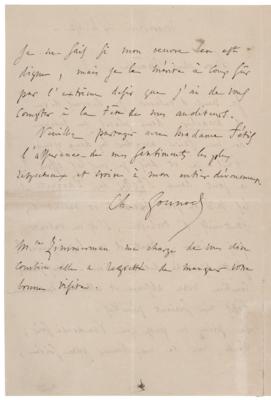 Je ne sais si mon œuvre en est
digne, mais je la mérite à coup sûr
par l'extrême désir que j'ai de vous
compter à la tête de mes auditeurs.
Veuillez partager avec Madame Fétis
l'assurance de mes sentiments les plus
respectueux et croire à mon entier dévouement.
Ch. Gounod
Mme Zimmerman me charge de vous dire
combien elle a regretté de manquer votre
bonne visite.